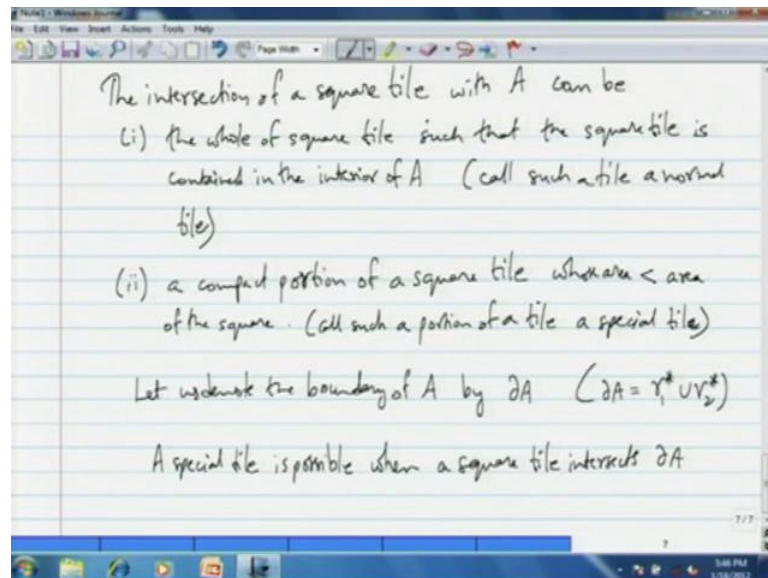 Note1 - Windows Journal
File Edit View Insert Actions Tools Help
Page Width
The intersection of a square tile with A can be
(i) the whole of square tile such that the square tile is
contained in the interior of A (call such a tile a normal
tile)
(ii) a compact portion of a square tile whose area < area
of the square. (Call such a portion of a tile a special tile)
Let us denote the boundary of A by ∂A (∂A = γ₁* ∪ γ₂*)
A special tile is possible when a square tile intersects ∂A
7/7
7
3:46 PM
1/18/2012